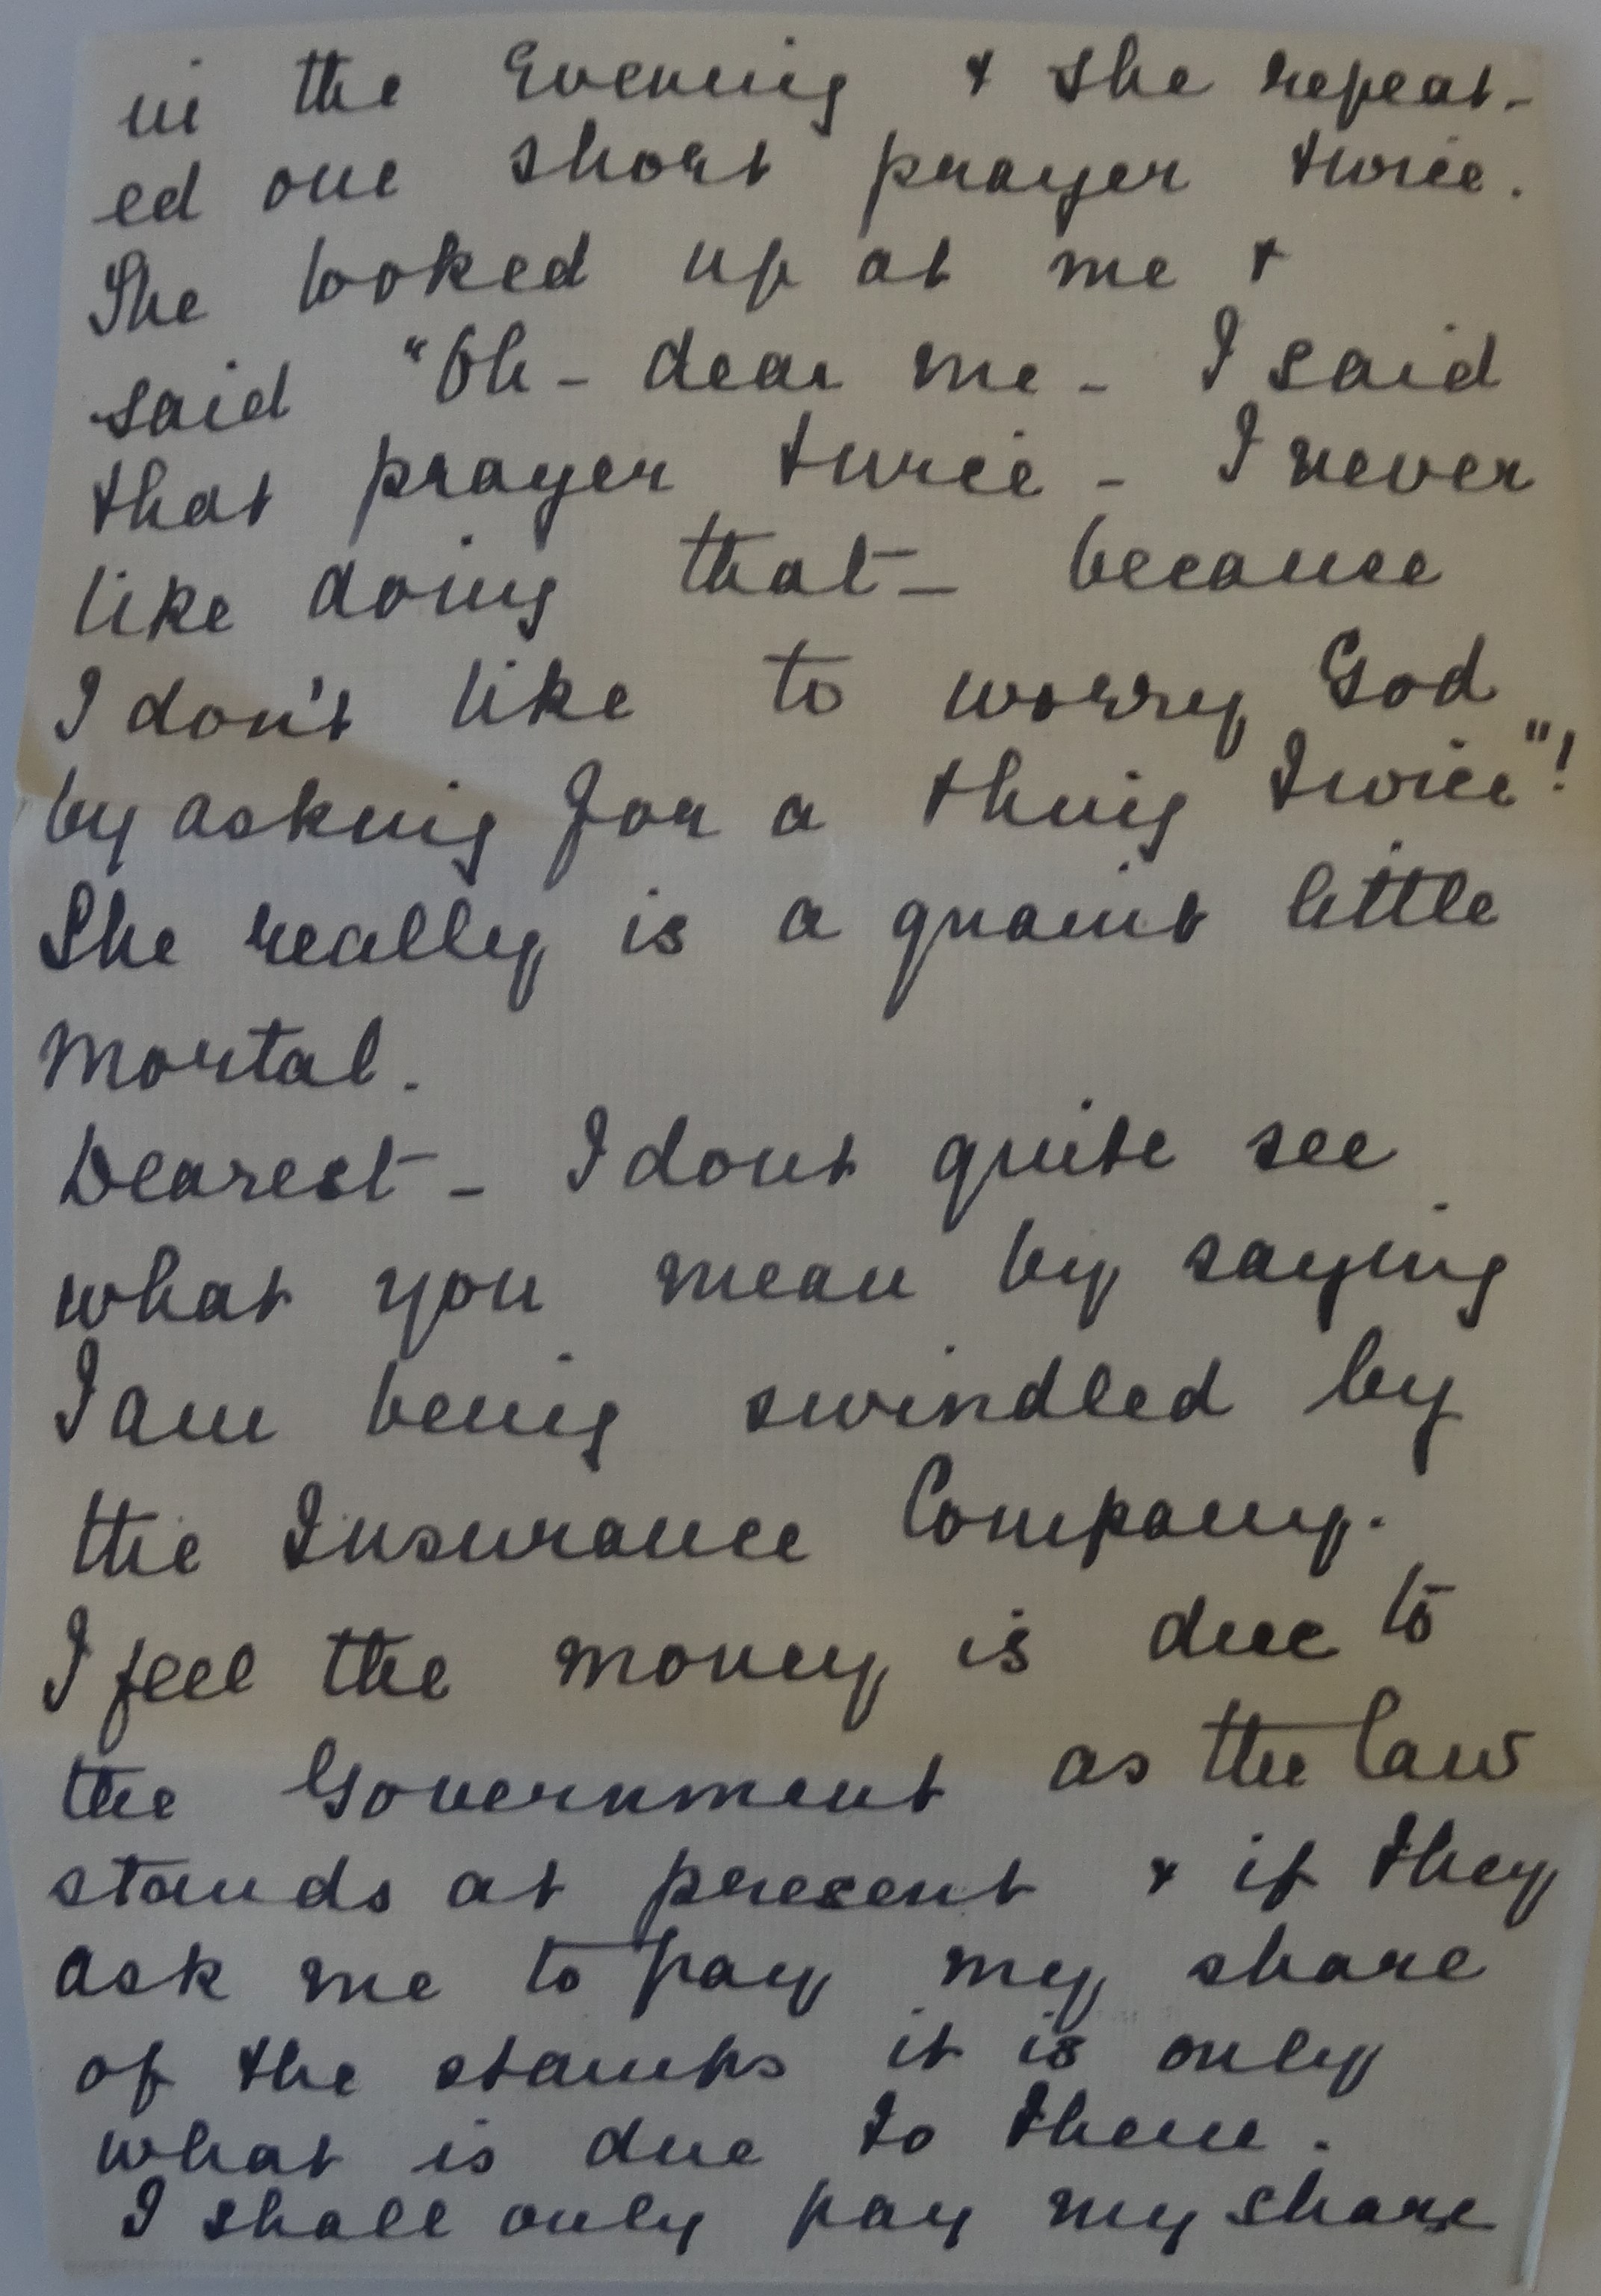 in the Evening & she repeat-
ed one short prayer twice.
She looked up at me &
said "Oh - dear me - I said
that prayer twice - I never
like doing that - because
I don't like to worry God
by asking for a thing twice"!
She really is a quaint little
mortal.
Dearest - I dont quite see
what you mean by saying
I am being swindled by
the Insurance Company.
I feel the money is due to
the Government as the law
stands at present & if they
ask me to pay my share
of the stamps it is only
what is due to them.
I shall only pay my share